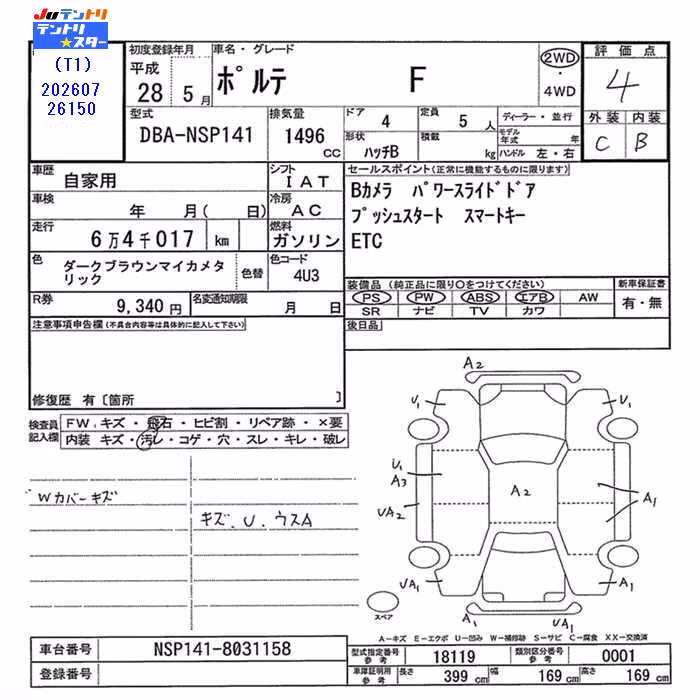 JUテントリ
テントリ
★スター
(T1)
202607
26150
初度登録年月
平成
28 5月
車名・グレード
ポルテ F
2WD
・
4WD
評価点
4
外装 内装
C B
型式
DBA-NSP141
排気量
1496
CC
ドア
4
定員
5 人
形状
ハッチB
積載
kg
ディーラー・並行
モデル年式 年
ハンドル 左・右
車歴
自家用
シフト
IAT
車検
年 月( 日)
冷房
AC
走行
6万4千017 km
燃料
ガソリン
色
ダークブラウンマイカメタ
リック
色替
色コード
4U3
R券
9,340 円
名変通知期限
月 日
セールスポイント(正常に機能するものに限ります)
Bカメラ パワースライドドア
プッシュスタート スマートキー
ETC
装備品 (純正品に限り○をつけてください)
PS PW ABS エアB AW
SR ナビ TV カワ
新車保証書
有・無
後日品
注意事項申告欄(不具合内容等は具体的に記入して下さい)
修復歴 有〔箇所 〕
検査員
記入欄
FW. キズ・飛石・ヒビ割・リペア跡・×要
内装 キズ・汚レ・コゲ・穴・スレ・キレ・破レ
Wカバーキズ
キズ.U.ウスA
A2
U1
U1
U1
A3
A2
A1
UA2
UA1
A1
A1
UA1
スペア
A-キズ E-エクボ U-凹み W-補修跡 S-サビ C-腐食 XX-交換済
車台番号
NSP141-8031158
登録番号
型式指定番号
参考
18119
類別区分番号
参考
0001
車庫証明用
参考
長さ
399 cm
幅
169 cm
高さ
169 cm